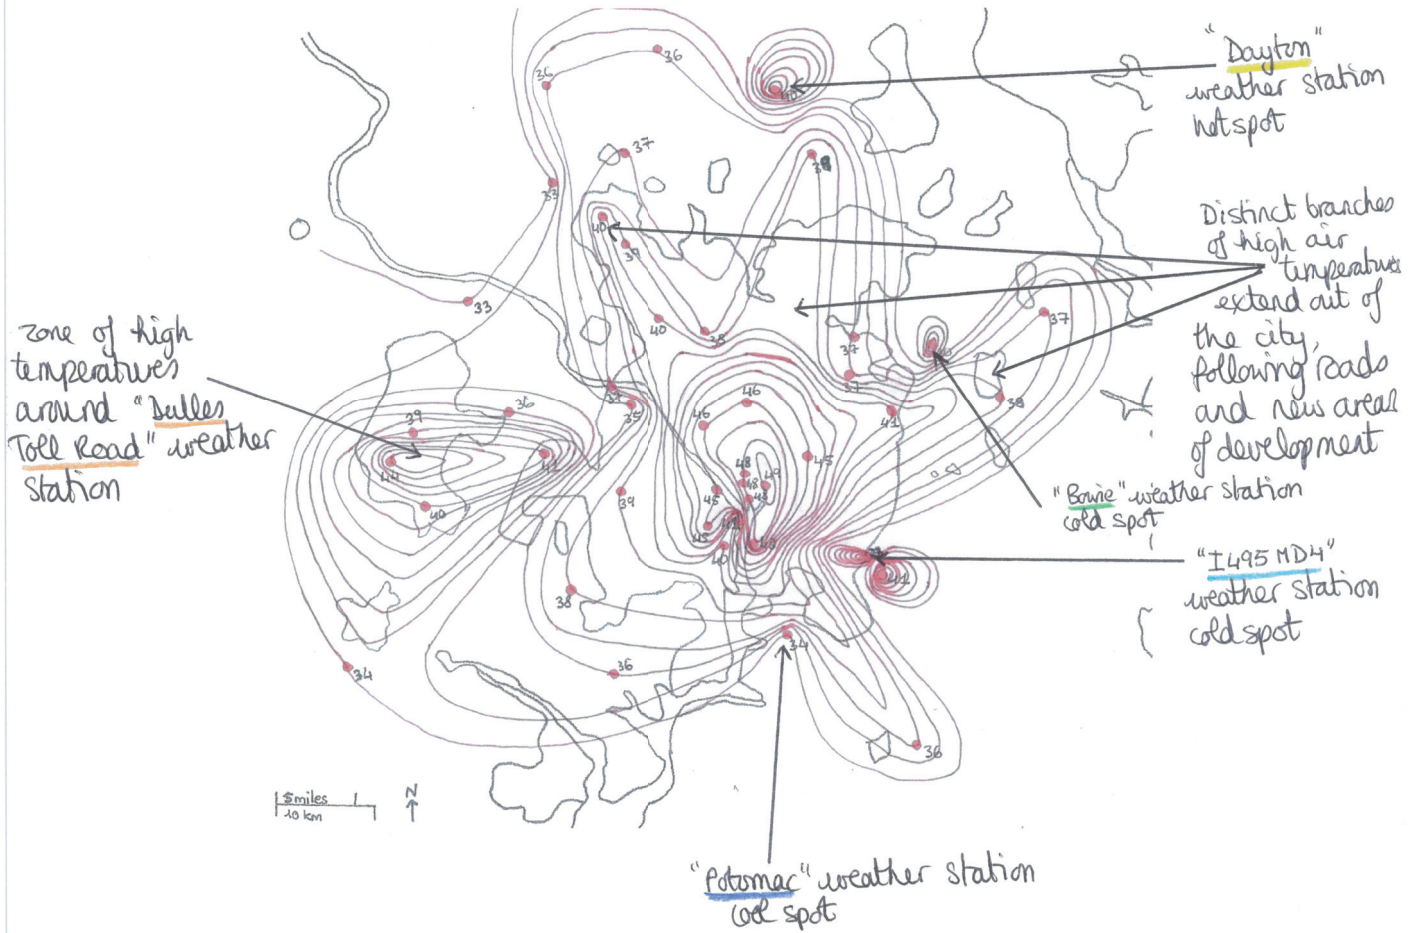 "Dayton"
weather station
hotspot
Distinct branches
of high air
temperatures
extend out of
the city,
following roads
and new areas
of development
zone of high
temperatures
around "Dulles
Toll Road" weather
station
"Bowie" weather station
cold spot
"I495 MD4"
weather station
cold spot
"Potomac" weather station
cool spot
5 miles
10 km
N
36
36
40
37
33
40
39
33
40
38
37
37
37
38
41
39
36
44
41
40
35
39
46
46
45
48
48
49
48
45
45
41
40
48
41
38
34
36
34
38